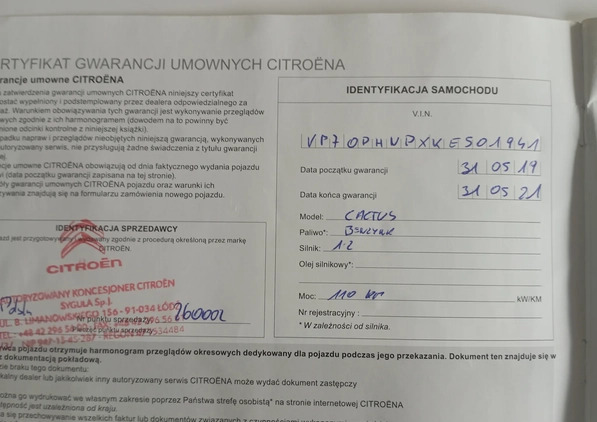 RTYFIKAT GWARANCJI UMOWNYCH CITROËNA
rancje umowne CITROËNA
zatwierdzenia gwarancji umownych CITROËNA niniejszy certyfikat
ostać wypełniony i podstemplowany przez dealera odpowiedzialnego za
aż. Warunkiem obowiązywania tych gwarancji jest wykonywanie przeglądów
wych zgodnie z ich harmonogramem (dowodem na to powinny być
nione odcinki kontrolne z niniejszej książki).
padku napraw i przeglądów nieobjętych niniejszą gwarancją, wykonywanych
utoryzowany serwis, nie przysługują żadne świadczenia z tytułu gwarancji
ej.
cje umowne CITROËNA obowiązują od dnia faktycznego wydania pojazdu
wi (data początku gwarancji zapisana na tej stronie).
óły gwarancji umownych CITROËNA pojazdu oraz warunki ich
zywania znajdują się na formularzu zamówienia nowego pojazdu.
IDENTYFIKACJA SPRZEDAWCY
zgodnie z procedurą określoną przez markę
CITROËN.
CITROËN
AUTORYZOWANY KONCESJONER CITROËN
SYGUŁA Sp.j.
UL. B. LIMANOWSKIEGO 156 - 91-034 ŁÓDŹ
Nr punktu sprzedaży: 260002
IDENTYFIKACJA SAMOCHODU
V.I.N.
VP70PHVPXKE501941
Data początku gwarancji 31 05 19
Data końca gwarancji 31 05 21
Model: CACTUS
Paliwo*: BENZYNA
Silnik: 1.2
Olej silnikowy*:
Moc: 110 kW/KM
Nr rejestracyjny :
* W zależności od silnika.
wca pojazdu otrzymuje harmonogram przeglądów okresowych dedykowany dla pojazdu podczas jego przekazania. Dokument ten znajduje się w
z dokumentacją pokładową.
zie braku tego dokumentu:
kalny dealer lub jakikolwiek inny autoryzowany serwis CITROËNA może wydać dokument zastępczy
ożna go wydrukować we własnym zakresie poprzez Państwa strefę osobistą* na stronie internetowej CITROËNA
tępność jest uzależniona od kraju.
a się przechowywanie wszelkich faktur lub dokumentów związanych z